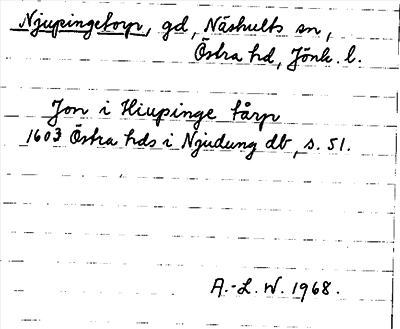 Njupingetorp, gd, Näshults sn,
Östra hd, Jönk. l.
Jon i Hiupinge tårp
1603 Östra hds i Njudung db, s. 51.
A.-L. W. 1968.